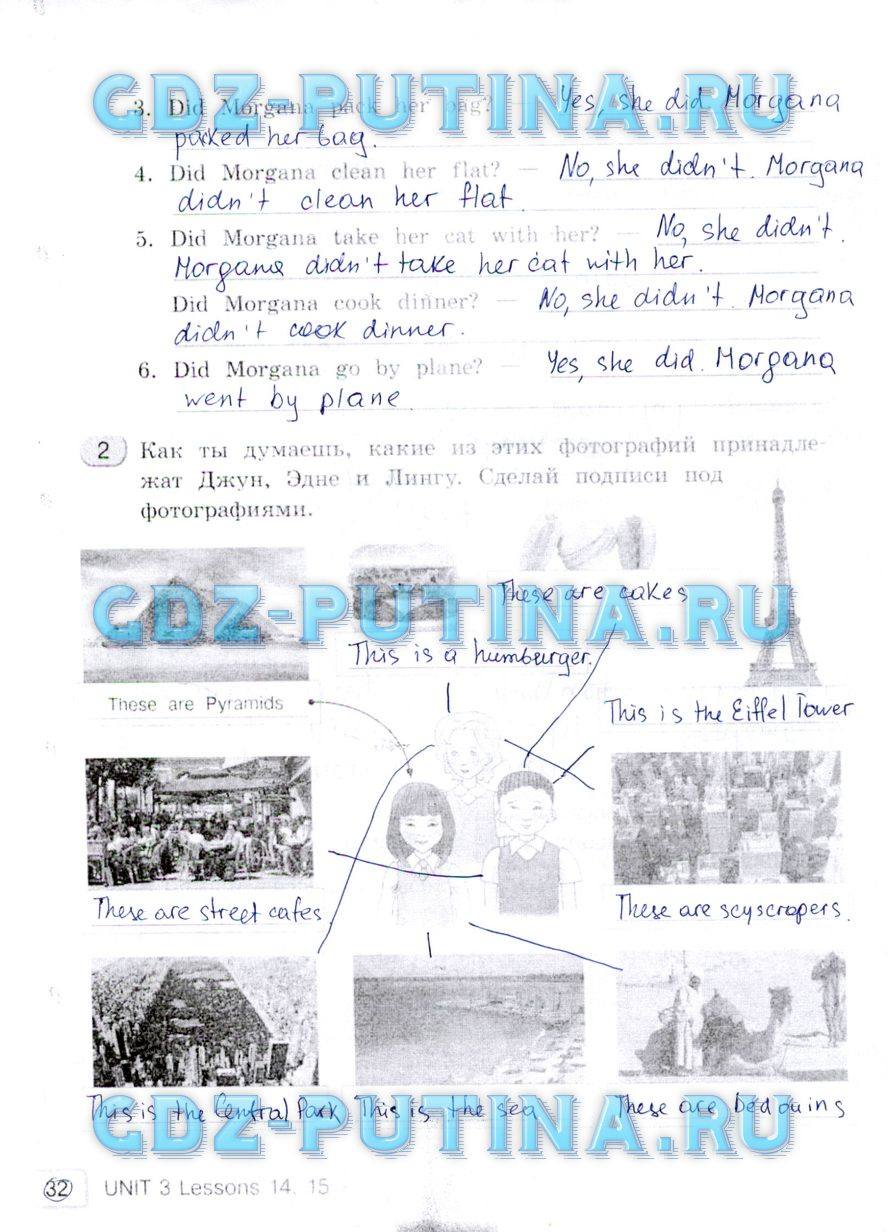 GDZ-PUTINA.RU
3. Did Morgana pack her bag? — Yes, she did. Morgana
packed her bag.
4. Did Morgana clean her flat? — No, she didn't. Morgana
didn't clean her flat.
5. Did Morgana take her cat with her? — No, she didn't.
Morgana didn't take her cat with her.
Did Morgana cook dinner? — No, she didn't. Morgana
didn't cook dinner.
6. Did Morgana go by plane? — Yes, she did. Morgana
went by plane.
2 Как ты думаешь, какие из этих фотографий принадле-
жат Джун, Эдне и Лингу. Сделай подписи под
фотографиями.
GDZ-PUTINA.RU
These are cakes
This is a humburger.
These are Pyramids
This is the Eiffel Tower
These are street cafes.
These are scyscropers.
This is the Central Park
This is the sea
These are bedouins
GDZ-PUTINA.RU
32 UNIT 3 Lessons 14, 15